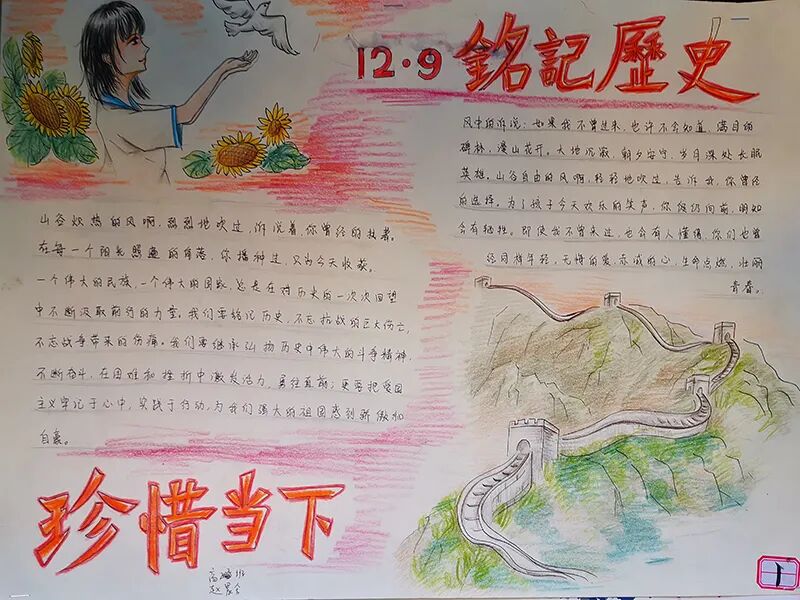 12·9 銘記歷史
风中的诉说：如果我不曾过来，也许不会知道，满目的
碑林，漫山花开。大地沉寂，朝夕安宁，岁月深处长眠
英雄。山谷自由的风啊，轻轻地吹过，告诉我，你曾经
的选择。为了孩子今天欢乐的笑声，你毅仍向前，明知
会有牺牲。即使我不曾来过，也会有人懂得，你们也曾
经同样年轻，无悔的爱，赤诚的心，生命点燃，壮丽
青春。
山谷炽热的风啊，烈烈地吹过，诉说着，你曾经的执着。
在每一个阳光照遍的角落，你播种过，只为今天收获。
一个伟大的民族，一个伟大的国家，总是在对历史的一次次回望
中不断汲取前行的力量。我们要铭记历史，不忘抗战的巨大伤亡，
不忘战争带来的伤痛。我们要继承弘扬历史中伟大的斗争精神，
不断奋斗，在困难和挫折中激发活力，勇往直前；更要把爱国
主义牢记于心中，实践于行动，为我们强大的祖国感到骄傲和
自豪。
珍惜当下
高 班
赵
1